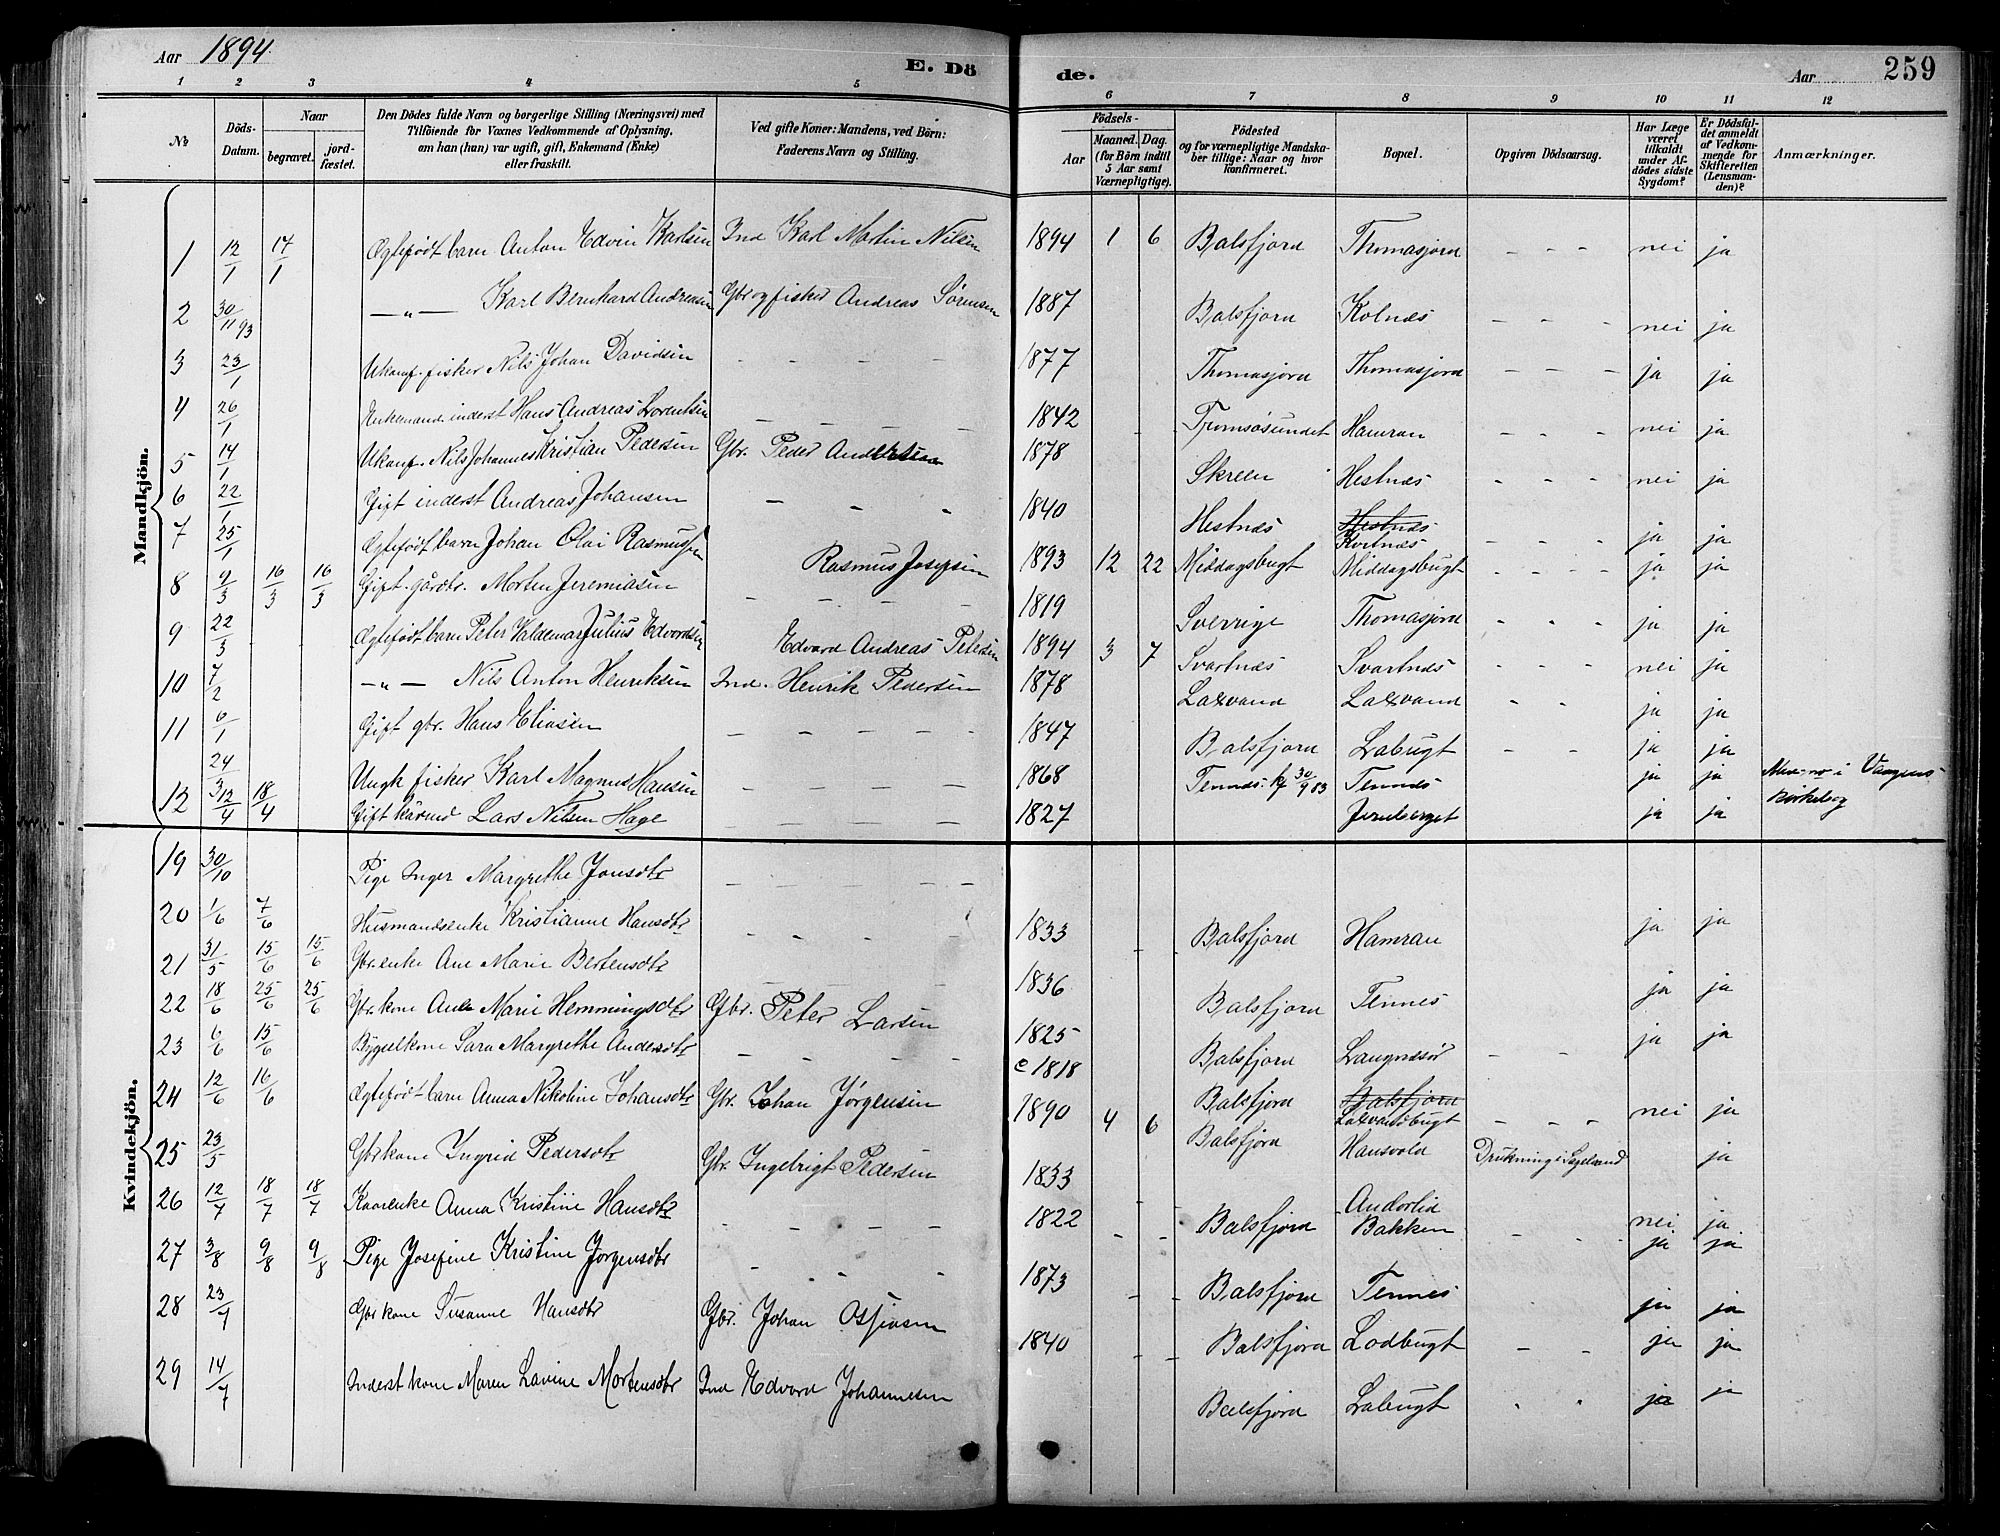 Aar 1894.
E. Dö
de.
Aar
259
1 2 3 4 5 6 7 8 9 10 11 12
No
Döds-Datum.
Naar
begravet.
jord-fæstet.
Den Dödes fulde Navn og borgerlige Stilling (Næringsvei) med
Tilföiende for Voxnes Vedkommende af Oplysning,
om han (hun) var ugift, gift, Enkemand (Enke)
eller fraskilt.
Ved gifte Koner: Mandens, ved Börn:
Faderens Navn og Stilling.
Födsels-
Aar
Maaned. Dag.
(for Börn indtil
5 Aar samt
Værnepligtige).
Födested
og for værnepligtige Mandska-
ber tillige: Naar og hvor
konfirmeret.
Bopæl.
Opgiven Dödsaarsag.
Har Læge
været
tilkaldt
under Af-
dödes sidste
Sygdom?
Er Dödsfal-
det anmeldt
af Vedkom-
mende for
Skifteretten
(Lensman-
den)?
Anmærkninger.
Mandkjön.
1 12/1 17/1 Ægtefødt barn Anton Edvin Karlsen Ind Karl Martin Nilsen 1894 1 6 Balsfjord Thomasjord - - - nei ja
2 30/11 93 —„— Karl Bernhard Andreasen Gbr og fisker Andreas Sørensen 1887 Balsfjord Kolnæs - - - nei ja
3 23/1 Ukonf. fisker Nils Johan Davidsen - - - - 1877 Thomasjord Thomasjord - - - ja ja
4 26/1 Enkemand inderst Hans Andreas Lorentsen - - - - 1842 Tromsøsundet Hamran - - - nei ja
5 14/1 Ukonf. Nils Johannes Kristian Pedersen Gbr. Peder Andersen 1878 Skreen Hestnæs - - - nei ja
6 22/1 Gift inderst Andreas Johansen - - - - 1840 Hestnæs Hestnæs Kvitnæs - - - ja ja
7 25/1 Ægtefødt barn Johan Olai Rasmussen Rasmus Josefsen 1893 12 22 Middagsbugt Middagsbugt - - - - ja ja
8 9/3 16/3 16/3 Gift gårdbr. Morten Jeremiasen - - - - 1819 Sverrige Thomasjord - - - ja ja
9 22/3 Ægtefødt barn Peter Valdemar Julius Edvardsen Edvard Andreas Petersen 1894 3 7 Svartnæs Svartnæs - - - nei ja
10 7/2 —„— Nils Anton Henriksen Ind. Henrik Pedersen 1878 Laxvand Laxvand - - ja ja
11 6/1 Gift gbr. Hans Eliasen - - - - - 1847 Balsfjord Labugt - - ja ja
24/3 Ungk fisker Karl Magnus Hansen - - - - - 1868 Tennes. 30/9 83 Tennes ja ja i Vangens kirkebog
12 12/4 18/4 Gift Lars Nilsen Hage - - - - - 1827 Jernberget ja ja
Kvindekjön.
19 30/10 Pige Inger Margrethe Jonsdtr - - - - - -
20 1/6 7/6 Husmandsenke Kristianne Hansdtr - - - - 1833 - Balsfjord Hamran ja ja
21 31/5 15/6 15/6 Gbr.enke Ane Marie Bertensdtr 1836 Balsfjord Tennes ja ja
22 18/6 25/6 25/6 Gbr kone Ane Marie Hemmingsdtr Gbr. Peter Larsen 1825 Balsfjord Langnæsør - - ja ja
23 6/6 15/6 Bygselkone Sara Margrethe Andersdtr - - - - c 1818 Balsfjord Balsfjord Laxvandbugt - - - nei ja
24 12/6 16/6 Ægtefødt barn Anna Nikoline Johansdtr Gbr. Johan Jørgensen 1890 4 6 Balsfjord Hansvold Drukning i ja
25 23/5 Gbr kone Ingrid Pedersdtr Gbr. Ingebrigt Pedersen 1833 - - Andorlid nei ja
26 12/7 18/7 18/7 Kaarenke Anna Kristine Hansdtr - - - - 1822 - - Balsfjord Bakken - - ja ja
27 3/8 9/8 9/8 Pige Josefine Kristine Jørgensdtr - - - - 1873 - - Balsfjord Tennes ja ja
28 23/7 Gbr kone Susanne Hansdtr Gbr. Johan 1840 - - Balsfjord Lodbugt - - ja ja
29 14/7 Inderst kone Maren Lavine Mortensdtr Ind Edvard Johannesen Balsfjord Labugt - - ja ja